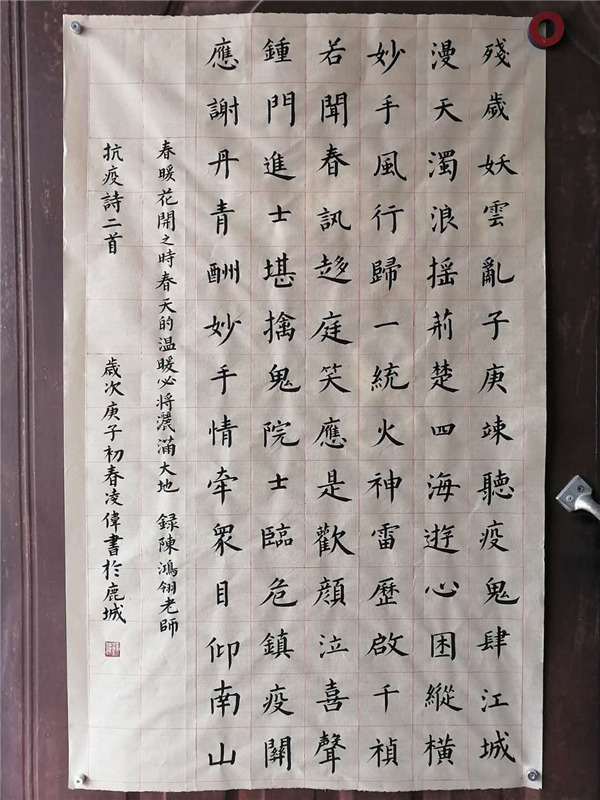 殘歲妖雲亂子庚竦聽疫鬼肆江城
漫天濁浪摇荊楚四海遊心困縱橫
妙手風行歸一統火神雷歷啟千禎
若聞春訊趍庭笑應是歡顔泣喜聲
鍾門進士堪擒鬼院士臨危鎮疫關
應謝丹青酬妙手情牽衆目仰南山
春暖花開之時春天的温暖必将濃滿大地 録陳鴻翎老師
抗疫詩二首 歲次庚子初春凌偉書於鹿城